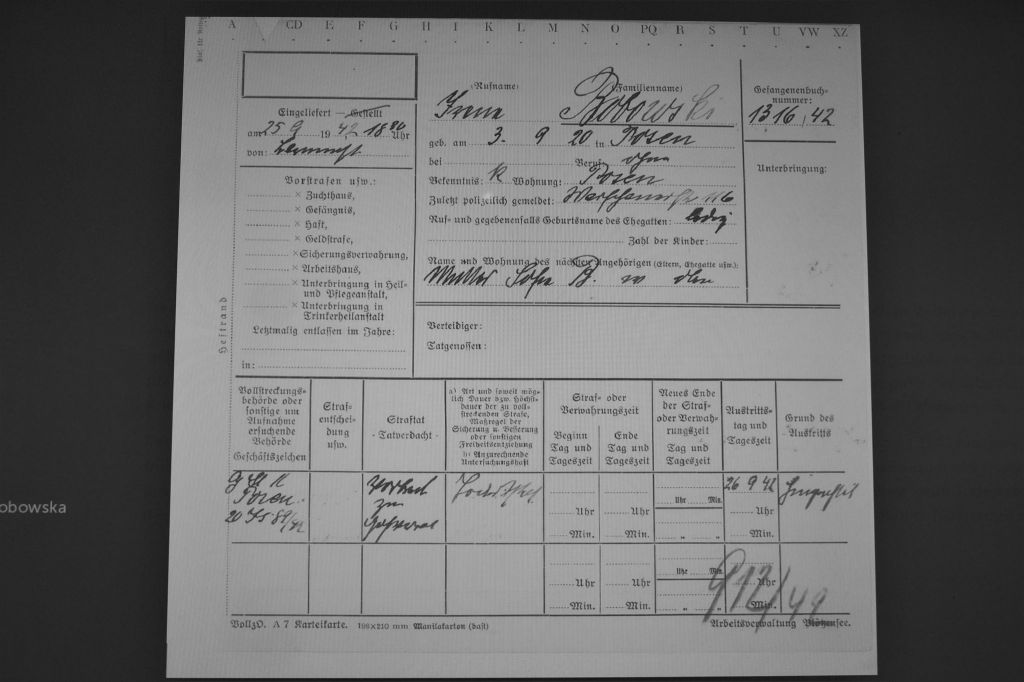 A CD E F G H I K L M N O PQ R S T U VW XZ
(Rufname) (Familienname)
Irene Bobowski
Gefangenenbuch=
nummer:
1316/42
Eingeliefert — Gestellt
am 25 9 1942, 18 00 Uhr
von:
geb. am 3. 9 20 in Posen
bei Beruf: ohne
Bekenntnis: k Wohnung: Posen
Zuletzt polizeilich gemeldet: Warschauerstr 116
Ruf= und gegebenenfalls Geburtsname des Ehegatten: ledig
Zahl der Kinder:
Name und Wohnung des nächsten Angehörigen (Eltern, Ehegatte usw.):
Mutter Sofie B. w oben
Unterbringung:
Vorstrafen usw.:
× Zuchthaus,
× Gefängnis,
× Haft,
× Geldstrafe,
× Sicherungsverwahrung,
× Arbeitshaus,
× Unterbringung in Heil=
und Pflegeanstalt,
× Unterbringung in
Trinkerheilanstalt
Letztmalig entlassen im Jahre:
in:
Heftrand
Verteidiger:
Tatgenossen:
Vollstreckungs=
behörde oder
sonstige um
Aufnahme
ersuchende
Behörde
Geschäftszeichen
Straf=
entschei=
dung
usw.
Straftat
- Tatverdacht -
a) Art und soweit mög=
lich Dauer bzw. Höchst=
dauer der zu voll=
streckenden Strafe,
Maßregel der
Sicherung u. Besserung
oder sonstigen
Freiheitsentziehung
b) Anzurechnende
Untersuchungshaft
Straf= oder
Verwahrungszeit
Beginn
Tag und
Tageszeit
Ende
Tag und
Tageszeit
Neues Ende
der Straf=
oder Verwah=
rungszeit
Tag und
Tageszeit
Austritts=
tag und
=Tageszeit
Grund des
Austritts
Posen
Vorber
zu
Hochverrat
Todesstrafe
26 9 42
hingerichtet
Uhr Min.
Uhr Uhr Uhr
Min. Min. „ „ Min.
Uhr Min.
Uhr Uhr Uhr
Min. Min. „ „ Min.
912/49
VollzO. A 7 Karteikarte. 198×210 mm Manilakarton (hast)
Arbeitsverwaltung Plötzensee.
obowska